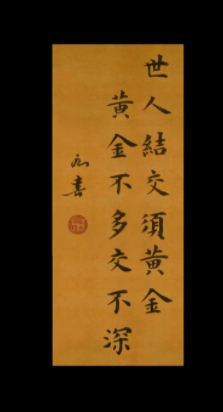 世人結交須黃金
黃金不多交不深